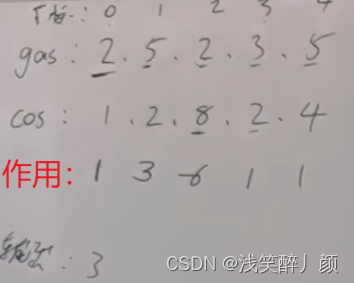 下标: 0 1 2 3 4
gas: 2. 5. 2. 3. 5
cos: 1. 2. 8. 2. 4
作用: 1 3 -6 1 1
输出: 3
CSDN @浅笑醉丿颜